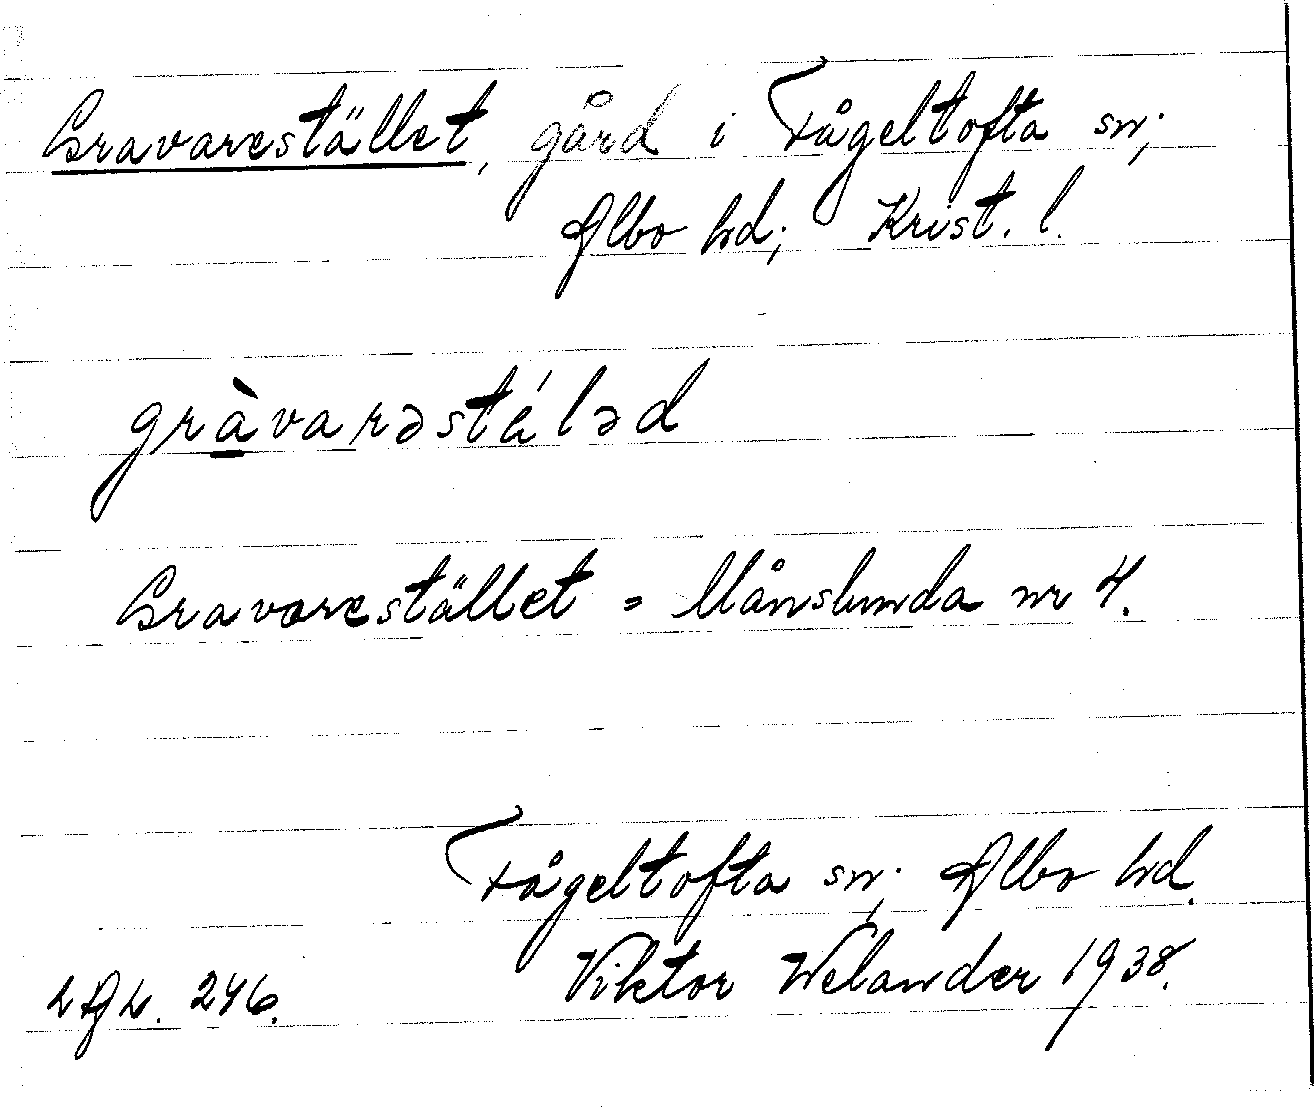 Gravarestället, gård i Fågeltofta sn;
Albo hd; Krist. l.
gràvarəstä́ləd
Gravarestället = Månslunda nr 4.
Fågeltofta sn; Albo hd.
Viktor Welander 1938.
LAL. 246.